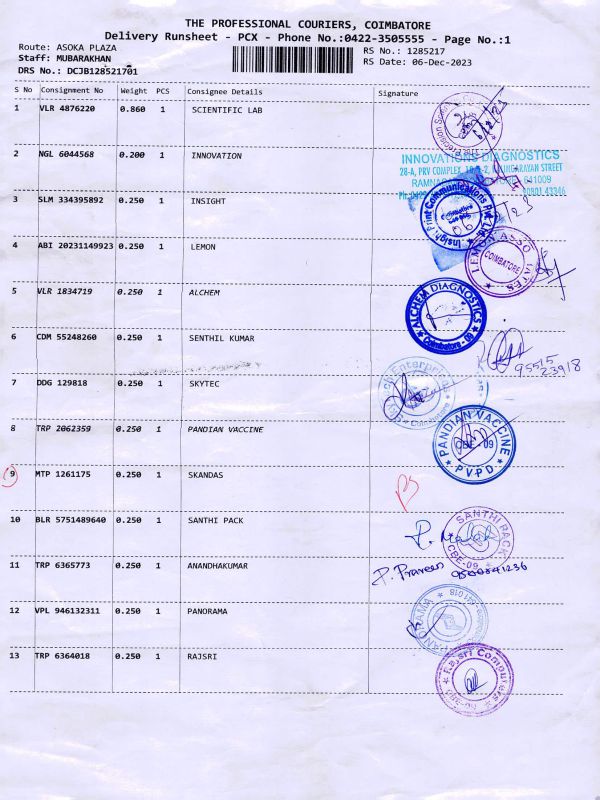 THE PROFESSIONAL COURIERS, COIMBATORE
Delivery Runsheet - PCX - Phone No.:0422-3505555 - Page No.:1
Route: ASOKA PLAZA
RS No.: 1285217
Staff: MUBARAKHAN
RS Date: 06-Dec-2023
DRS No.: DCJB128521701
S No Consignment No Weight PCS Consignee Details Signature
1 VLR 4876220 0.860 1 SCIENTIFIC LAB
2 NGL 6044568 0.200 1 INNOVATION
INNOVATIONS DIAGNOSTICS
28-A, PRV COMPLEX,
641009
3 SLM 334395892 0.250 1 INSIGHT
Insight Print Communications P Ltd
4 ABI 20231149923 0.250 1 LEMON
LEMON ASSOCIATES
COIMBATORE
5 VLR 1834719 0.250 1 ALCHEM
ALCHEM DIAGNOSTICS
Coimbatore - 09
6 CDM 55248260 0.250 1 SENTHIL KUMAR
95515
23918
7 DDG 129818 0.250 1 SKYTEC
8 TRP 2062359 0.250 1 PANDIAN VACCINE
PANDIAN VACCINE
CBE - 09
PVPD
9 MTP 1261175 0.250 1 SKANDAS
10 BLR 5751489640 0.250 1 SANTHI PACK
SANTHI PACK
CBE-09
11 TRP 6365773 0.250 1 ANANDHAKUMAR
P. Praveen 9500841236
12 VPL 946132311 0.250 1 PANORAMA
PANORAMA
13 TRP 6364018 0.250 1 RAJSRI
Rajsri Computers
CBE-09